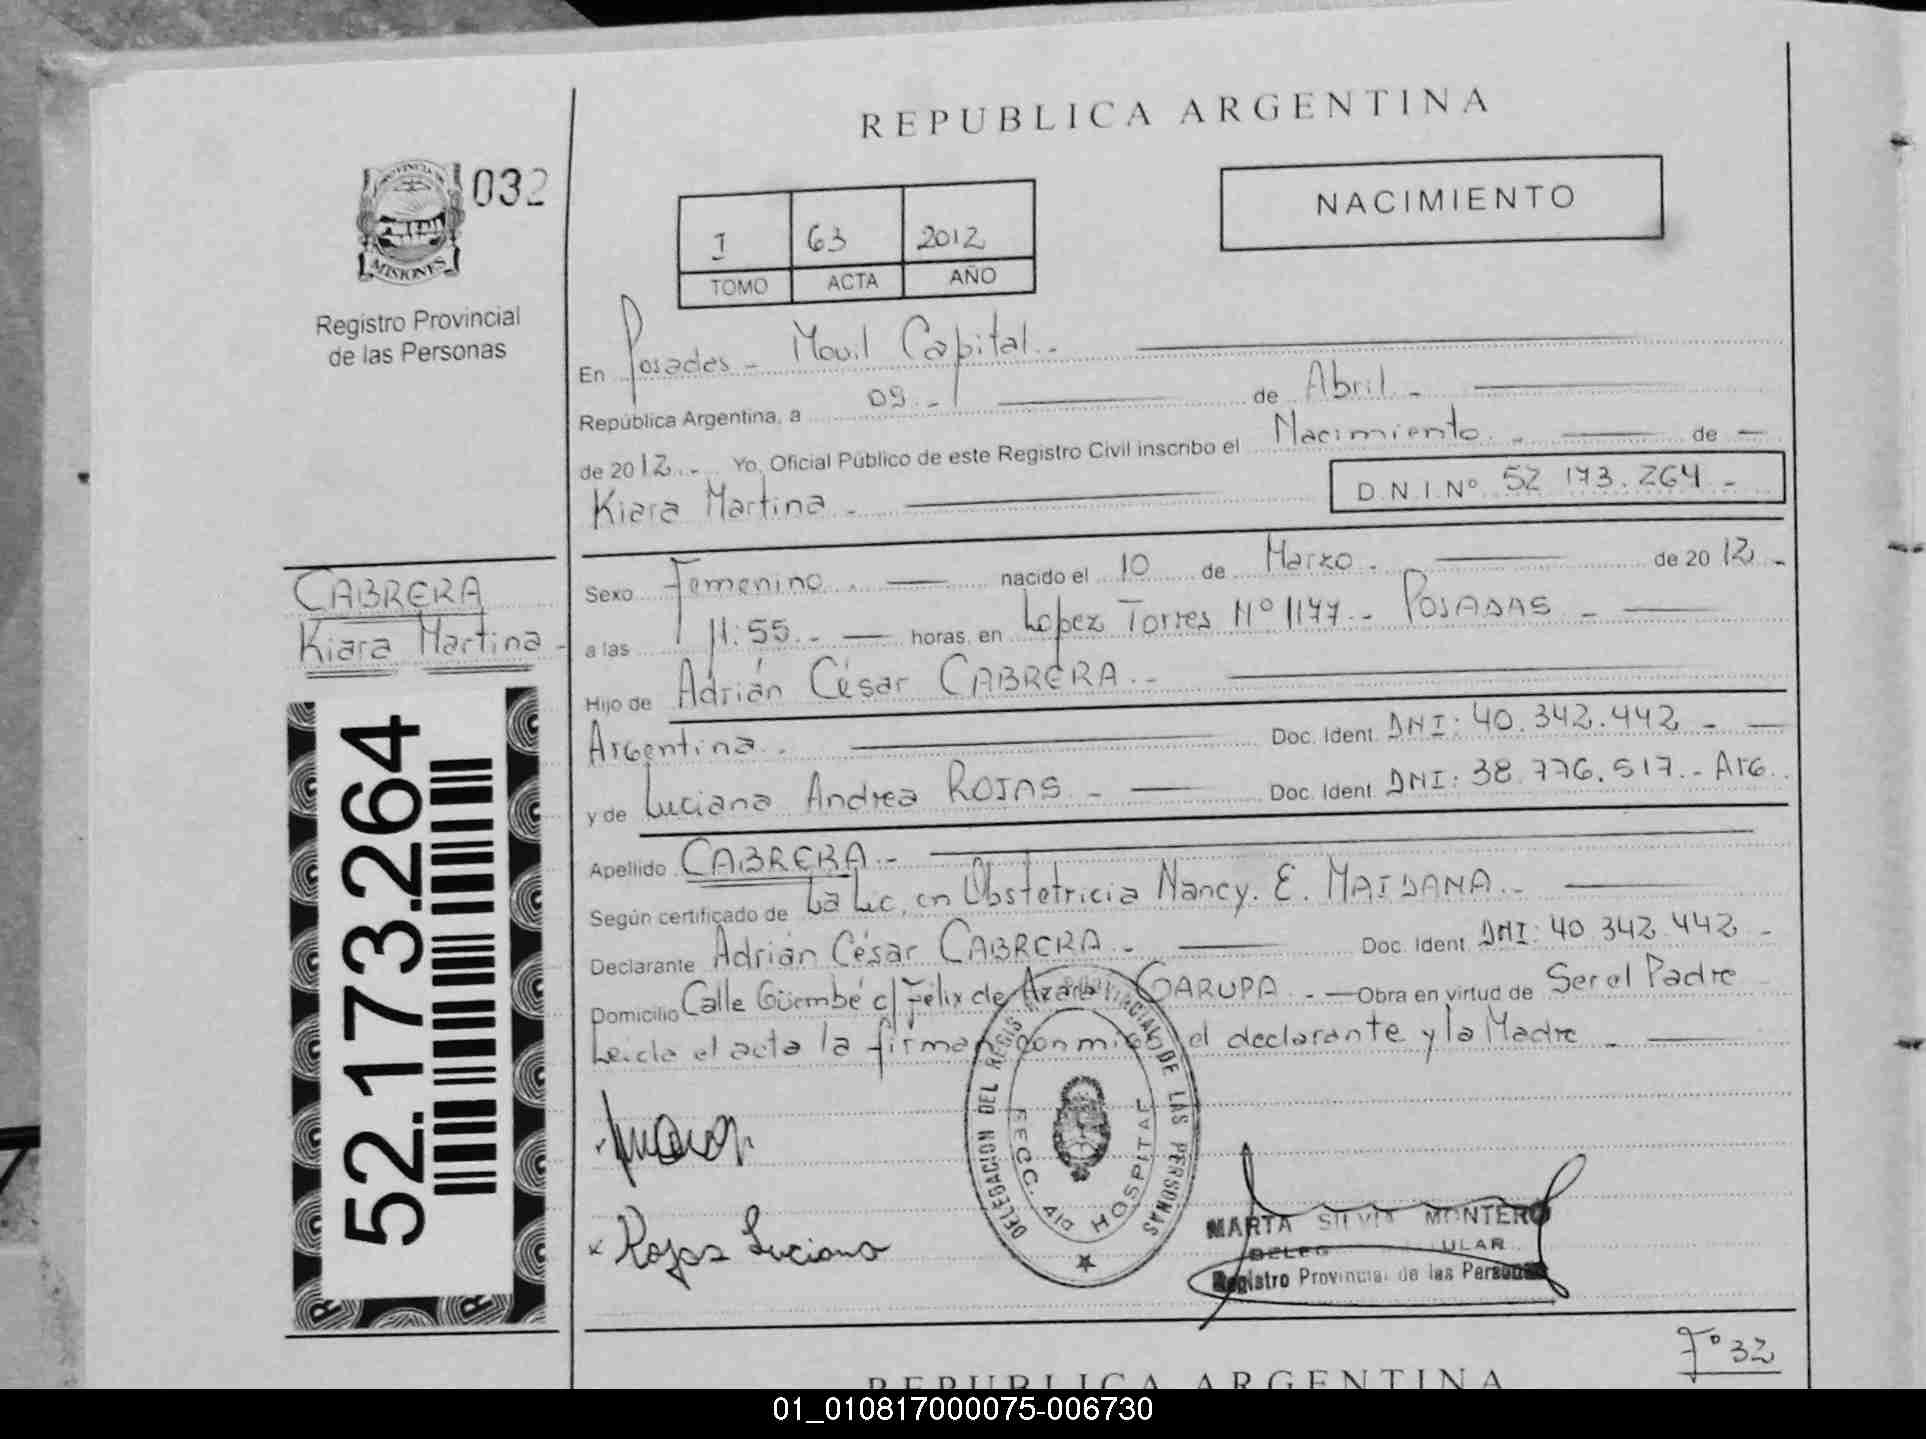 REPUBLICA ARGENTINA
032
PROVINCIA DE
MISIONES
Registro Provincial
de las Personas
NACIMIENTO
I 63 2012
TOMO ACTA AÑO
En Posadas - Movil Capital.-
República Argentina, a 09.- de Abril.-
de 2012.- Yo, Oficial Público de este Registro Civil inscribo el Nacimiento.- de -
Kiara Martina - D.N.I.Nº 52 173.264 -
CABRERA
Kiara Martina -
Sexo Femenino.- nacido el 10 de Marzo.- de 2012.-
a las 11:55.- horas, en Lopez Torres Nº 1177.- POSADAS -
Hijo de Adrián César CABRERA.-
Argentina.- Doc. Ident. DNI: 40.342.442 -
y de Luciana Andrea ROJAS - Doc. Ident. DNI: 38.776.517.- Arg.
Apellido CABRERA.-
Según certificado de La Lic. en Obstetricia Nancy. E. MAIDANA.-
Declarante Adrián César CABRERA.- Doc. Ident. DNI: 40 342.442 -
Domicilio Calle Güembé c/ Félix de Azara GARUPA.- Obra en virtud de Ser el Padre
Leida el acta la firman conmigo el declarante y la Madre -
52.173.264
DELEGACION DEL REGIS PROVINCIAL DE LAS PERSONAS
SECC. 4ta HOSPITAL
x Rojas Luciana
MARTA SILVIA MONTERO
Registro Provincial de las Personas
Fº 32
REPUBLICA ARGENTINA
01_010817000075-006730